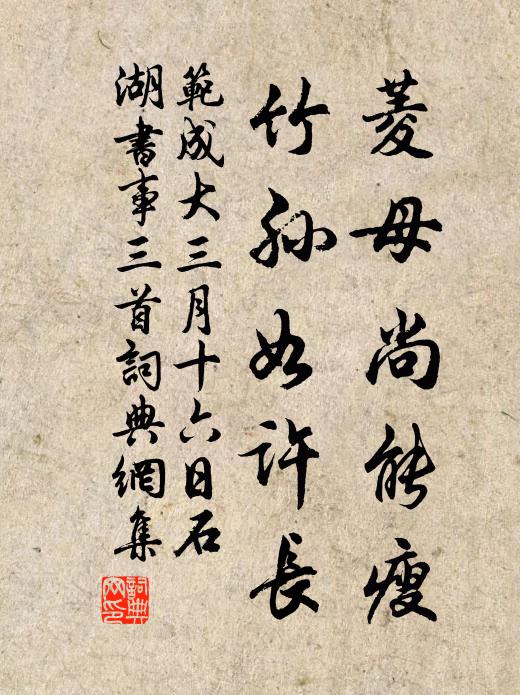 菱母尚能瘦
竹孫如許長
範成大三月十六日石
湖書事三首詞典網集
詞典
網印